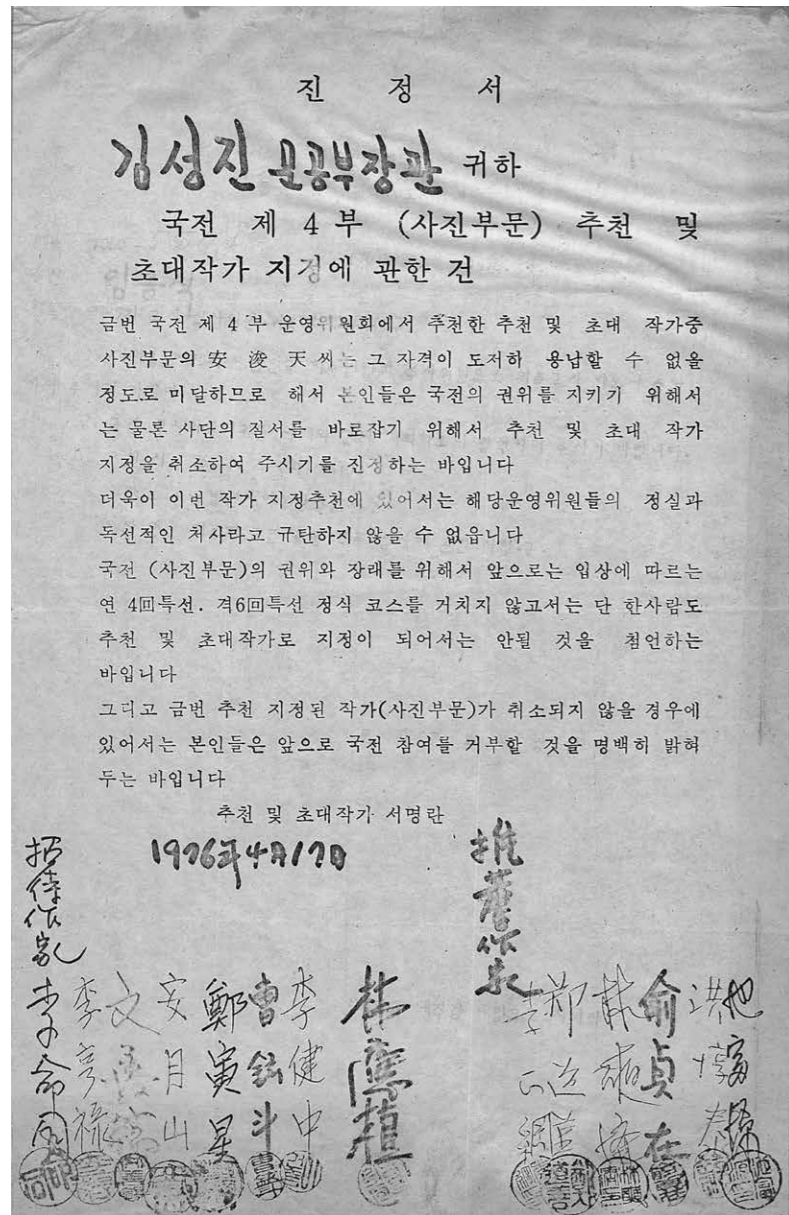 진 정 서
김성진 문공부장관 귀하
국전 제 4 부 (사진부문) 추천 및
초대작가 지정에 관한 건
금번 국전 제 4 부 운영위원회에서 추천한 추천 및 초대 작가중
사진부문의 安 浚 天 씨는 그 자격이 도저히 용납할 수 없을
정도로 미달하므로 해서 본인들은 국전의 권위를 지키기 위해서
는 물론 사단의 질서를 바로잡기 위해서 추천 및 초대 작가
지정을 취소하여 주시기를 진정하는 바입니다
더욱이 이번 작가 지정추천에 있어서는 해당운영위원들의 정실과
독선적인 처사라고 규탄하지 않을 수 없읍니다
국전 (사진부문)의 권위와 장래를 위해서 앞으로는 입상에 따르는
연 4回특선. 격6回특선 정식 코스를 거치지 않고서는 단 한사람도
추천 및 초대작가로 지정이 되어서는 안될 것을 첨언하는
바입니다
그리고 금번 추천 지정된 작가(사진부문)가 취소되지 않을 경우에
있어서는 본인들은 앞으로 국전 참여를 거부할 것을 명백히 밝혀
두는 바입니다
추천 및 초대작가 서명란
1976年4月17日
招待作家
李命同
李亨禄
文
安月山
鄭寅星
曹鉉斗
李健中
林應植
推薦作家
李
鄭
兪貞在
洪
池富